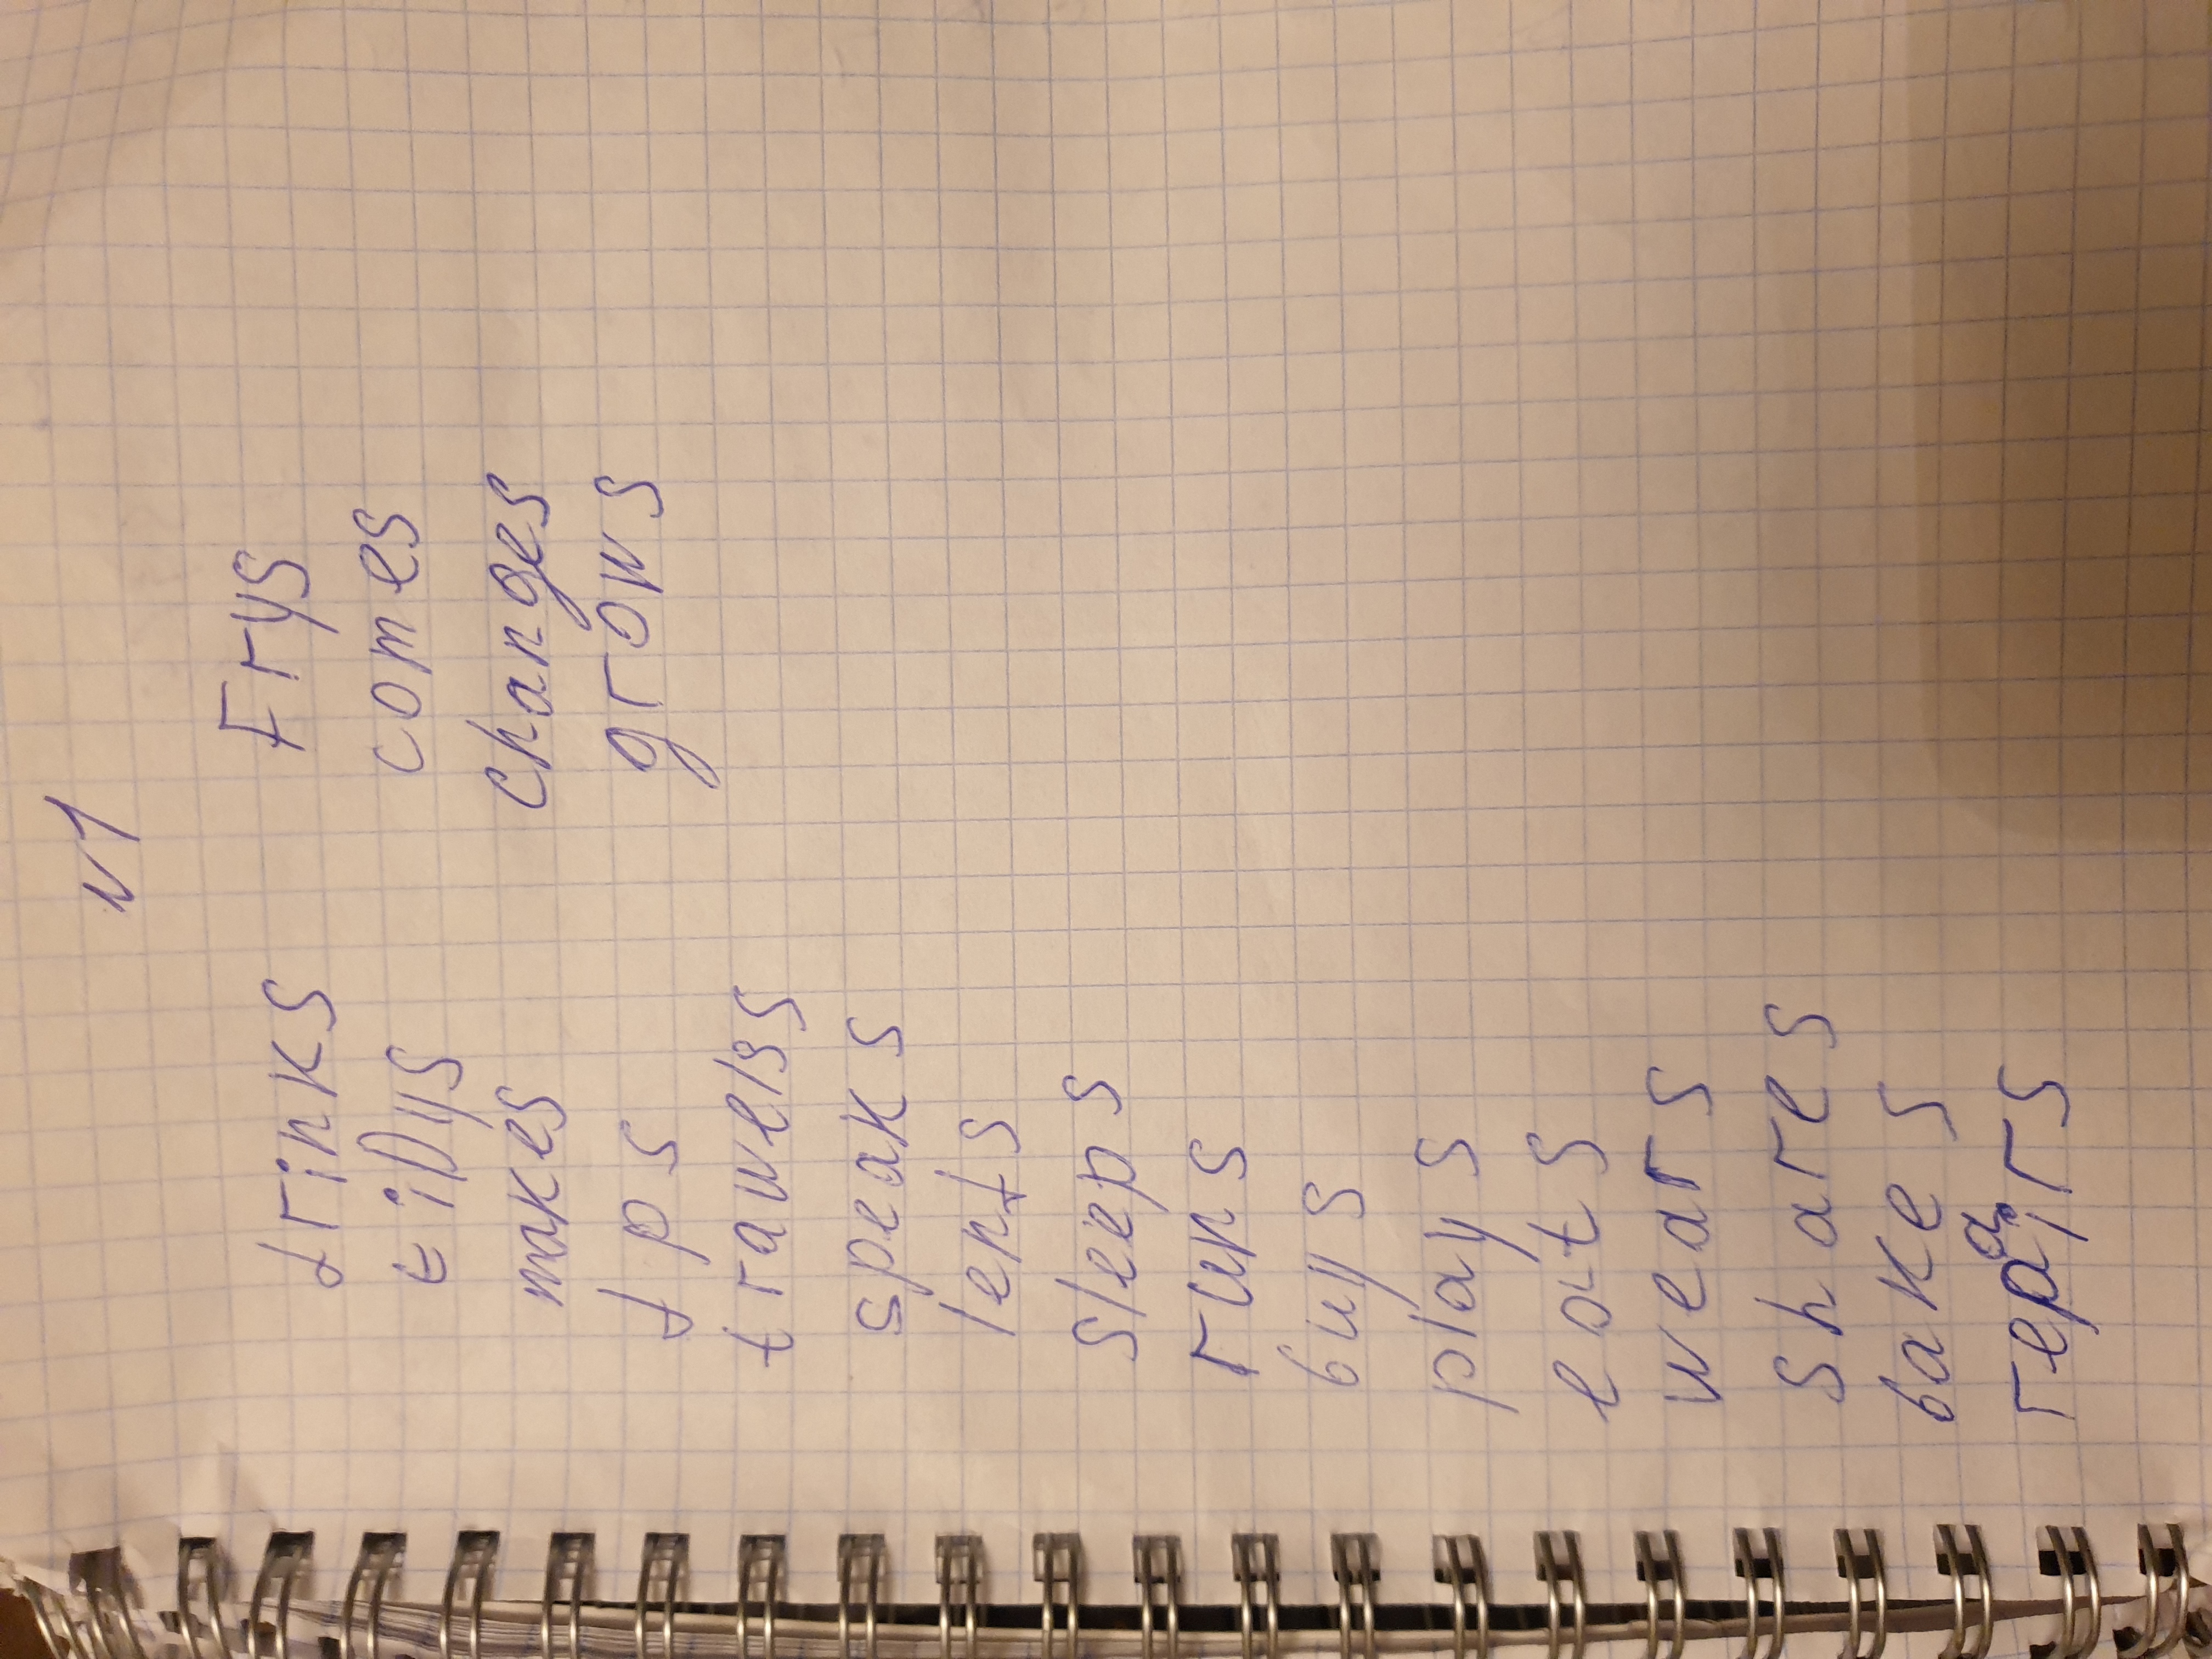 N1
drinks
tiDys
makes
dps
trawelss
speaks
lents
sleeps
runs
buys
plays
eats
wears
shares
bakes
repairs
Frys
comes
changes
grows